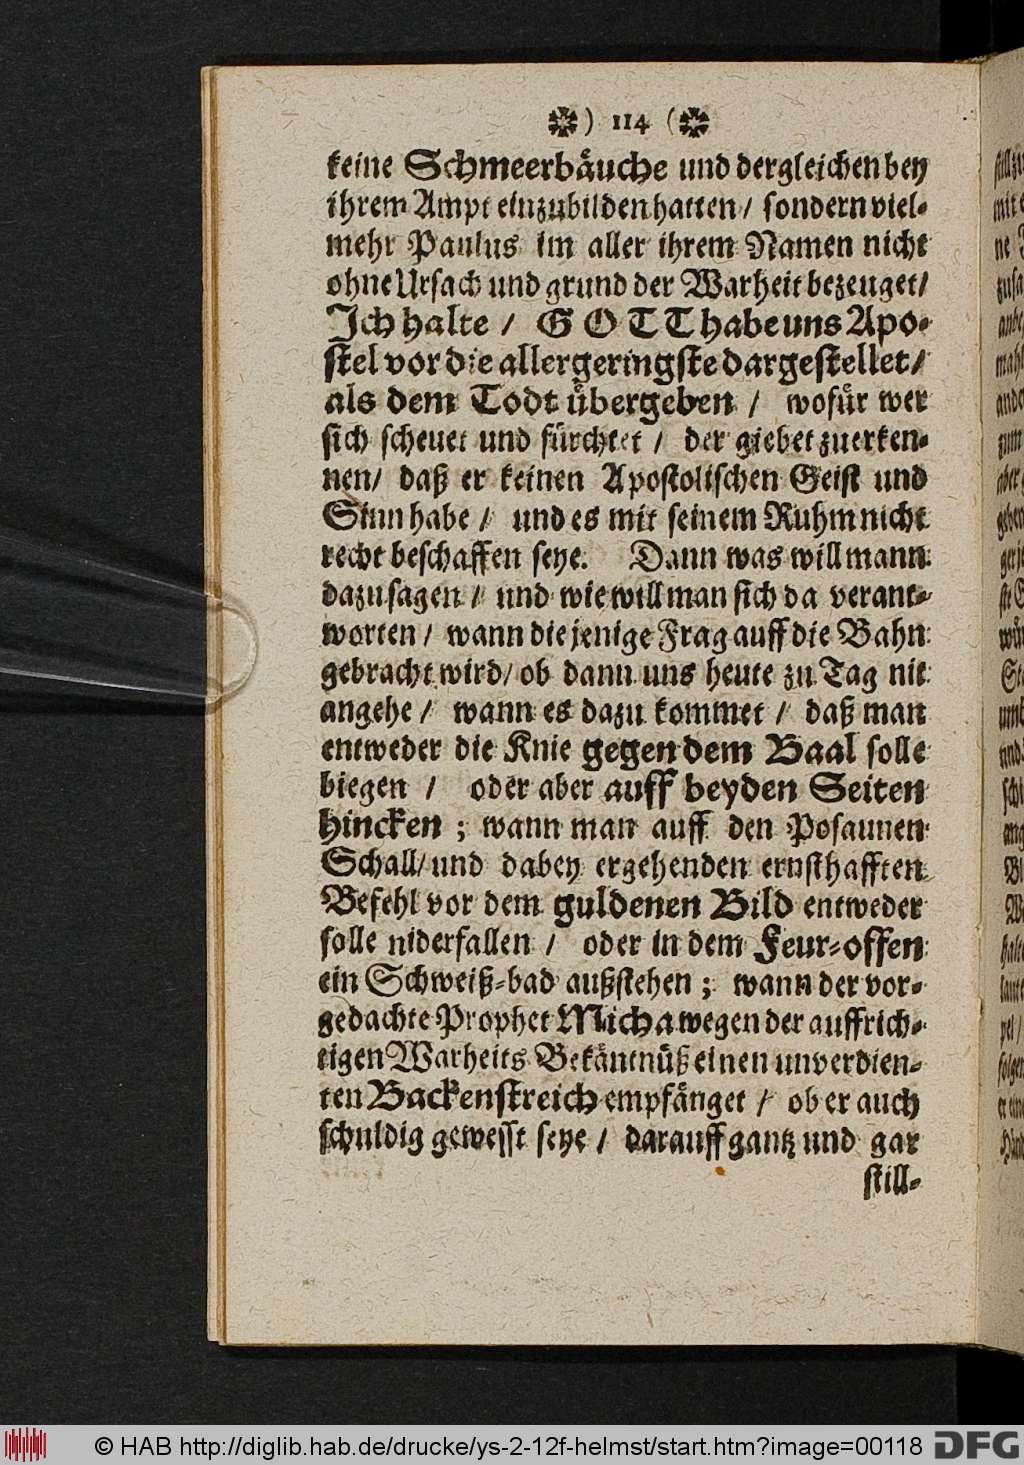 ) 114 (
keine Schmeerbäuche und dergleichen bey
ihrem Ampt einzubilden hatten / sondern viel-
mehr Paulus im aller ihrem Namen nicht
ohne Ursach und grund der Warheit bezeuget /
Ich halte / GOTT habe uns Apo-
stel vor die allergeringste dargestellet /
als dem Todt übergeben / wofür wer
sich scheuet und fürchtet / der giebet zuerken-
nen / daß er keinen Apostolischen Geist und
Sinn habe / und es mit seinem Ruhm nicht
recht beschaffen seye. Dann was will mann
dazu sagen / und wie will man sich da verant-
worten / wann die jenige Frag auff die Bahn
gebracht wird / ob dann uns heute zu Tag nit
angehe / wann es dazu kommet / daß man
entweder die Knie gegen dem Baal solle
biegen / oder aber auff beyden Seiten
hincken ; wann man auff den Posaunen
Schall / und dabey ergehenden ernsthafften
Befehl vor dem guldenen Bild entweder
solle niderfallen / oder in dem Feur-offen
ein Schweiß-bad außstehen ; wann der vor-
gedachte Prophet Micha wegen der auffrich-
tigen Warheits Bekäntnüß einen unverdien-
ten Backenstreich empfänget / ob er auch
schuldig gewesst seye / darauff gantz und gar
still-
© HAB http://diglib.hab.de/drucke/ys-2-12f-helmst/start.htm?image=00118 DFG